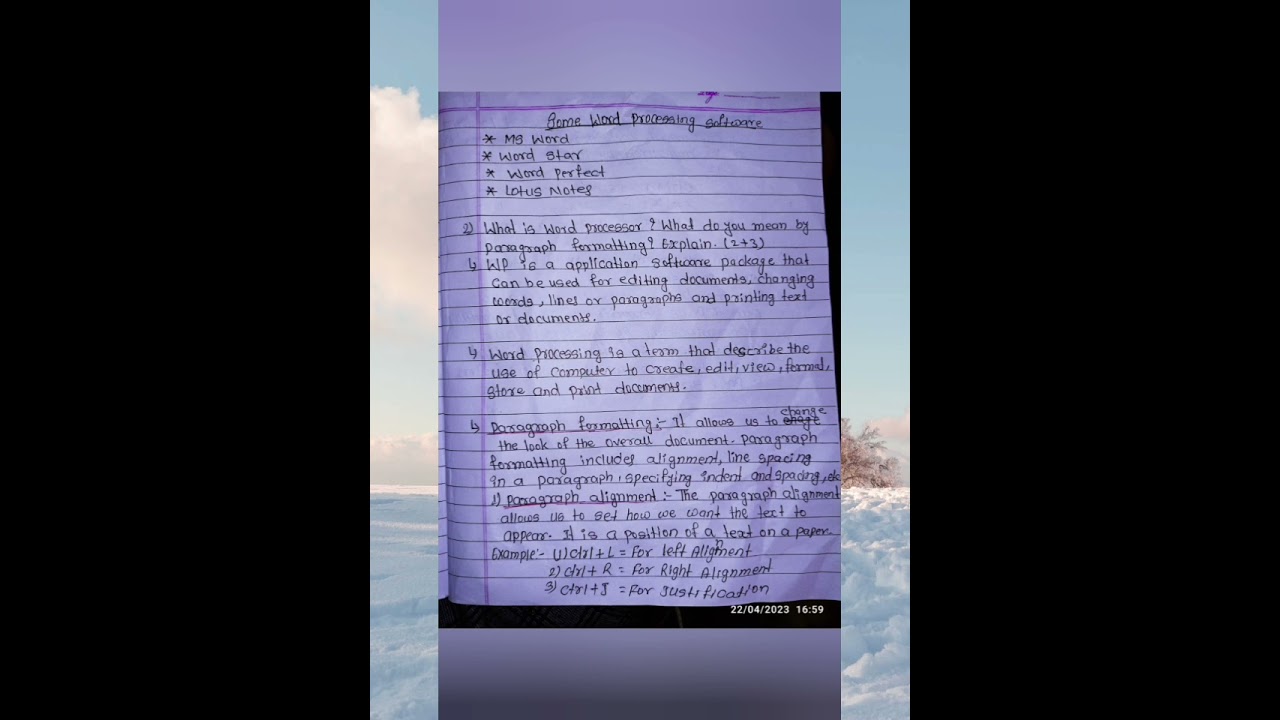 Some Word Processing Software
* MS Word
* Word Star
* Word Perfect
* Lotus Notes
2) What is word processor? What do you mean by
paragraph formatting? Explain. (2+3)
↳ WP is a application software package that
can be used for editing documents, changing
words, lines or paragraphs and printing text
or documents.
↳ Word processing is a term that describe the
use of computer to create, edit, view, format,
store and print documents.
↳ Paragraph formatting:- It allows us to change
the look of the overall document. Paragraph
formatting includes alignment, line spacing
in a paragraph, specifying indent and spacing, etc
1) Paragraph alignment:- The paragraph alignment
allows us to set how we want the text to
appear. It is a position of a text on a paper.
Example:- 1) Ctrl+L = For left Alignment
2) Ctrl+R = For Right Alignment
3) Ctrl+J = For Justification
22/04/2023 16:59